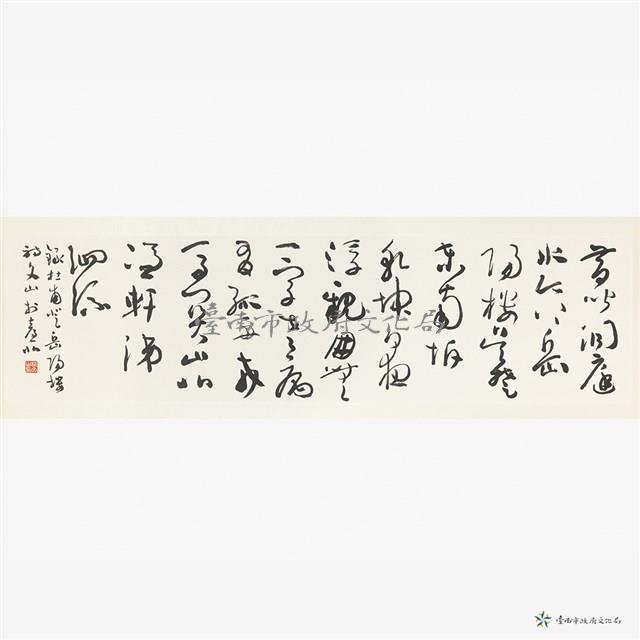 昔聞洞庭
水今上岳
陽樓吳楚
東南坼
乾坤日夜
浮親朋無
一字老病
有孤舟戎
馬關山北
憑軒涕
泗流
錄杜甫登岳陽樓
詩文山於臺北
臺南市政府文化局
臺南市政府文化局